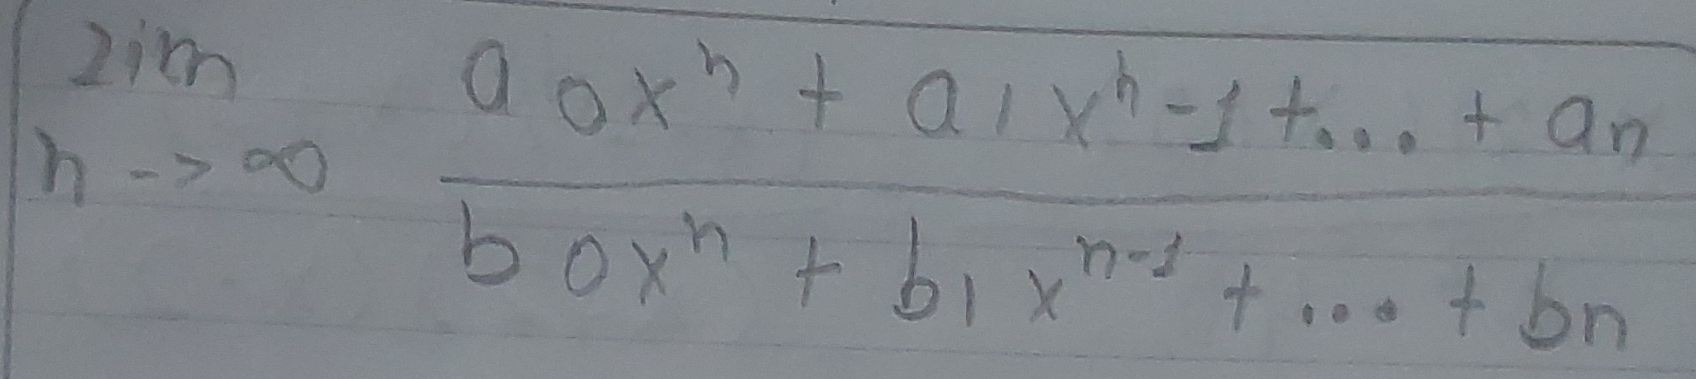 lim a₀xⁿ + a₁xⁿ-1 +... + aₙ
n -> ∞ b₀xⁿ + b₁xⁿ⁻¹ + ... + bₙ